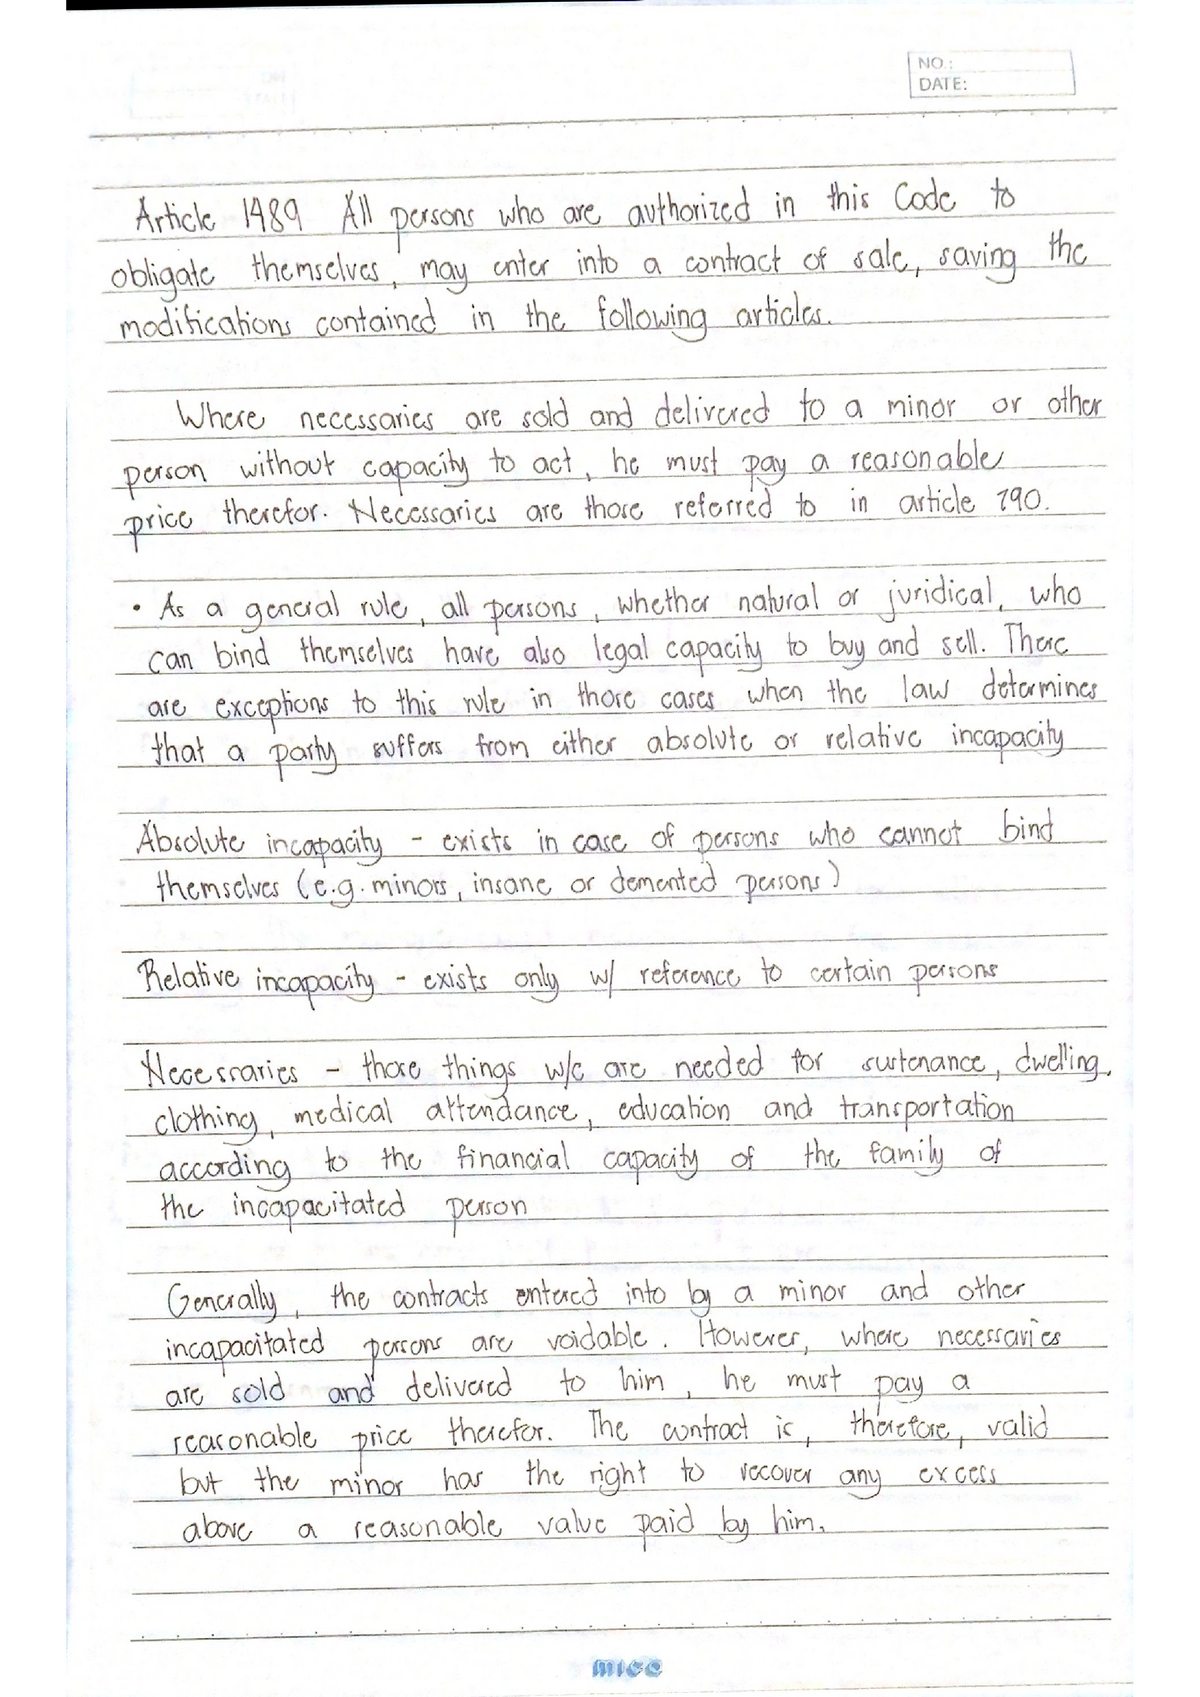 NO.:
DATE:
Article 1489 All persons who are authorized in this Code to
obligate themselves, may enter into a contract of sale, saving the
modifications contained in the following articles.
Where necessaries are sold and delivered to a minor or other
person without capacity to act, he must pay a reasonable
price therefor. Necessaries are those referred to in article 290.
• As a general rule, all persons, whether natural or juridical, who
can bind themselves have also legal capacity to buy and sell. There
are exceptions to this rule in those cases when the law determines
that a party suffers from either absolute or relative incapacity
Absolute incapacity - exists in case of persons who cannot bind
themselves (e.g. minors, insane or demented persons)
Relative incapacity - exists only w/ reference to certain persons
Necessaries - those things w/c are needed for sustenance, dwelling,
clothing, medical attendance, education and transportation
according to the financial capacity of the family of
the incapacitated person
Generally, the contracts entered into by a minor and other
incapacitated persons are voidable. However, where necessaries
are sold and delivered to him, he must pay a
reasonable price therefor. The contract is, therefore, valid
but the minor has the right to recover any excess
above a reasonable value paid by him.